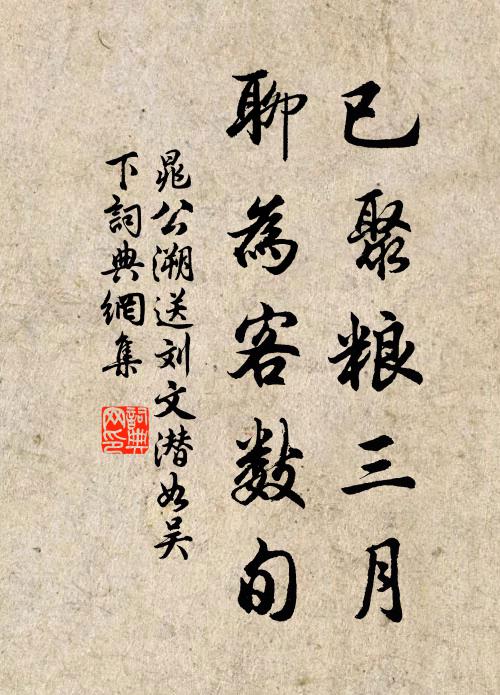 已聚粮三月
聊為客数旬
晁公溯送刘文潜如吴
下詞典網集
詞典网印